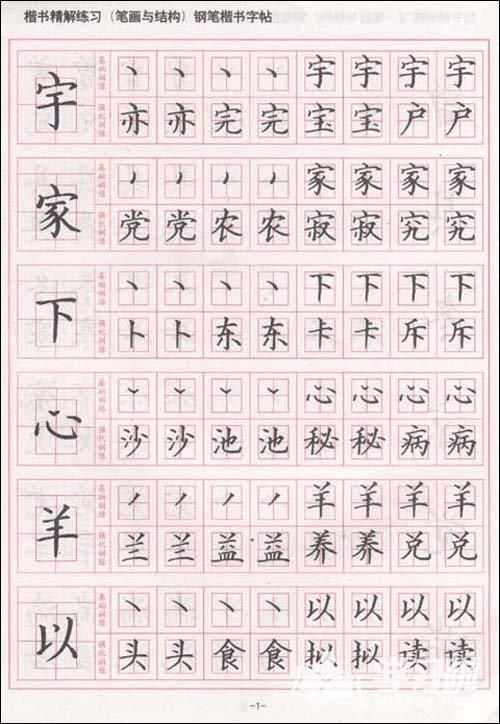 楷书精解练习（笔画与结构）钢笔楷书字帖
宇
基础训练 丶 丶 丶 丶 宇 宇 宇 宇
强化训练 亦 亦 完 完 宝 宝 户 户
家
基础训练 丿 丿 丿 丿 家 家 家 家
强化训练 党 党 农 农 寂 寂 究 究
下
基础训练 丶 丶 丶 丶 下 下 下 下
强化训练 卜 卜 东 东 卡 卡 斥 斥
心
基础训练 心 心 心 心
强化训练 沙 沙 池 池 秘 秘 病 病
羊
基础训练 羊 羊 羊 羊
强化训练 兰 兰 益 益 养 养 兑 兑
以
基础训练 丶 丶 丶 丶 以 以 以 以
强化训练 头 头 食 食 拟 拟 读 读
-1-